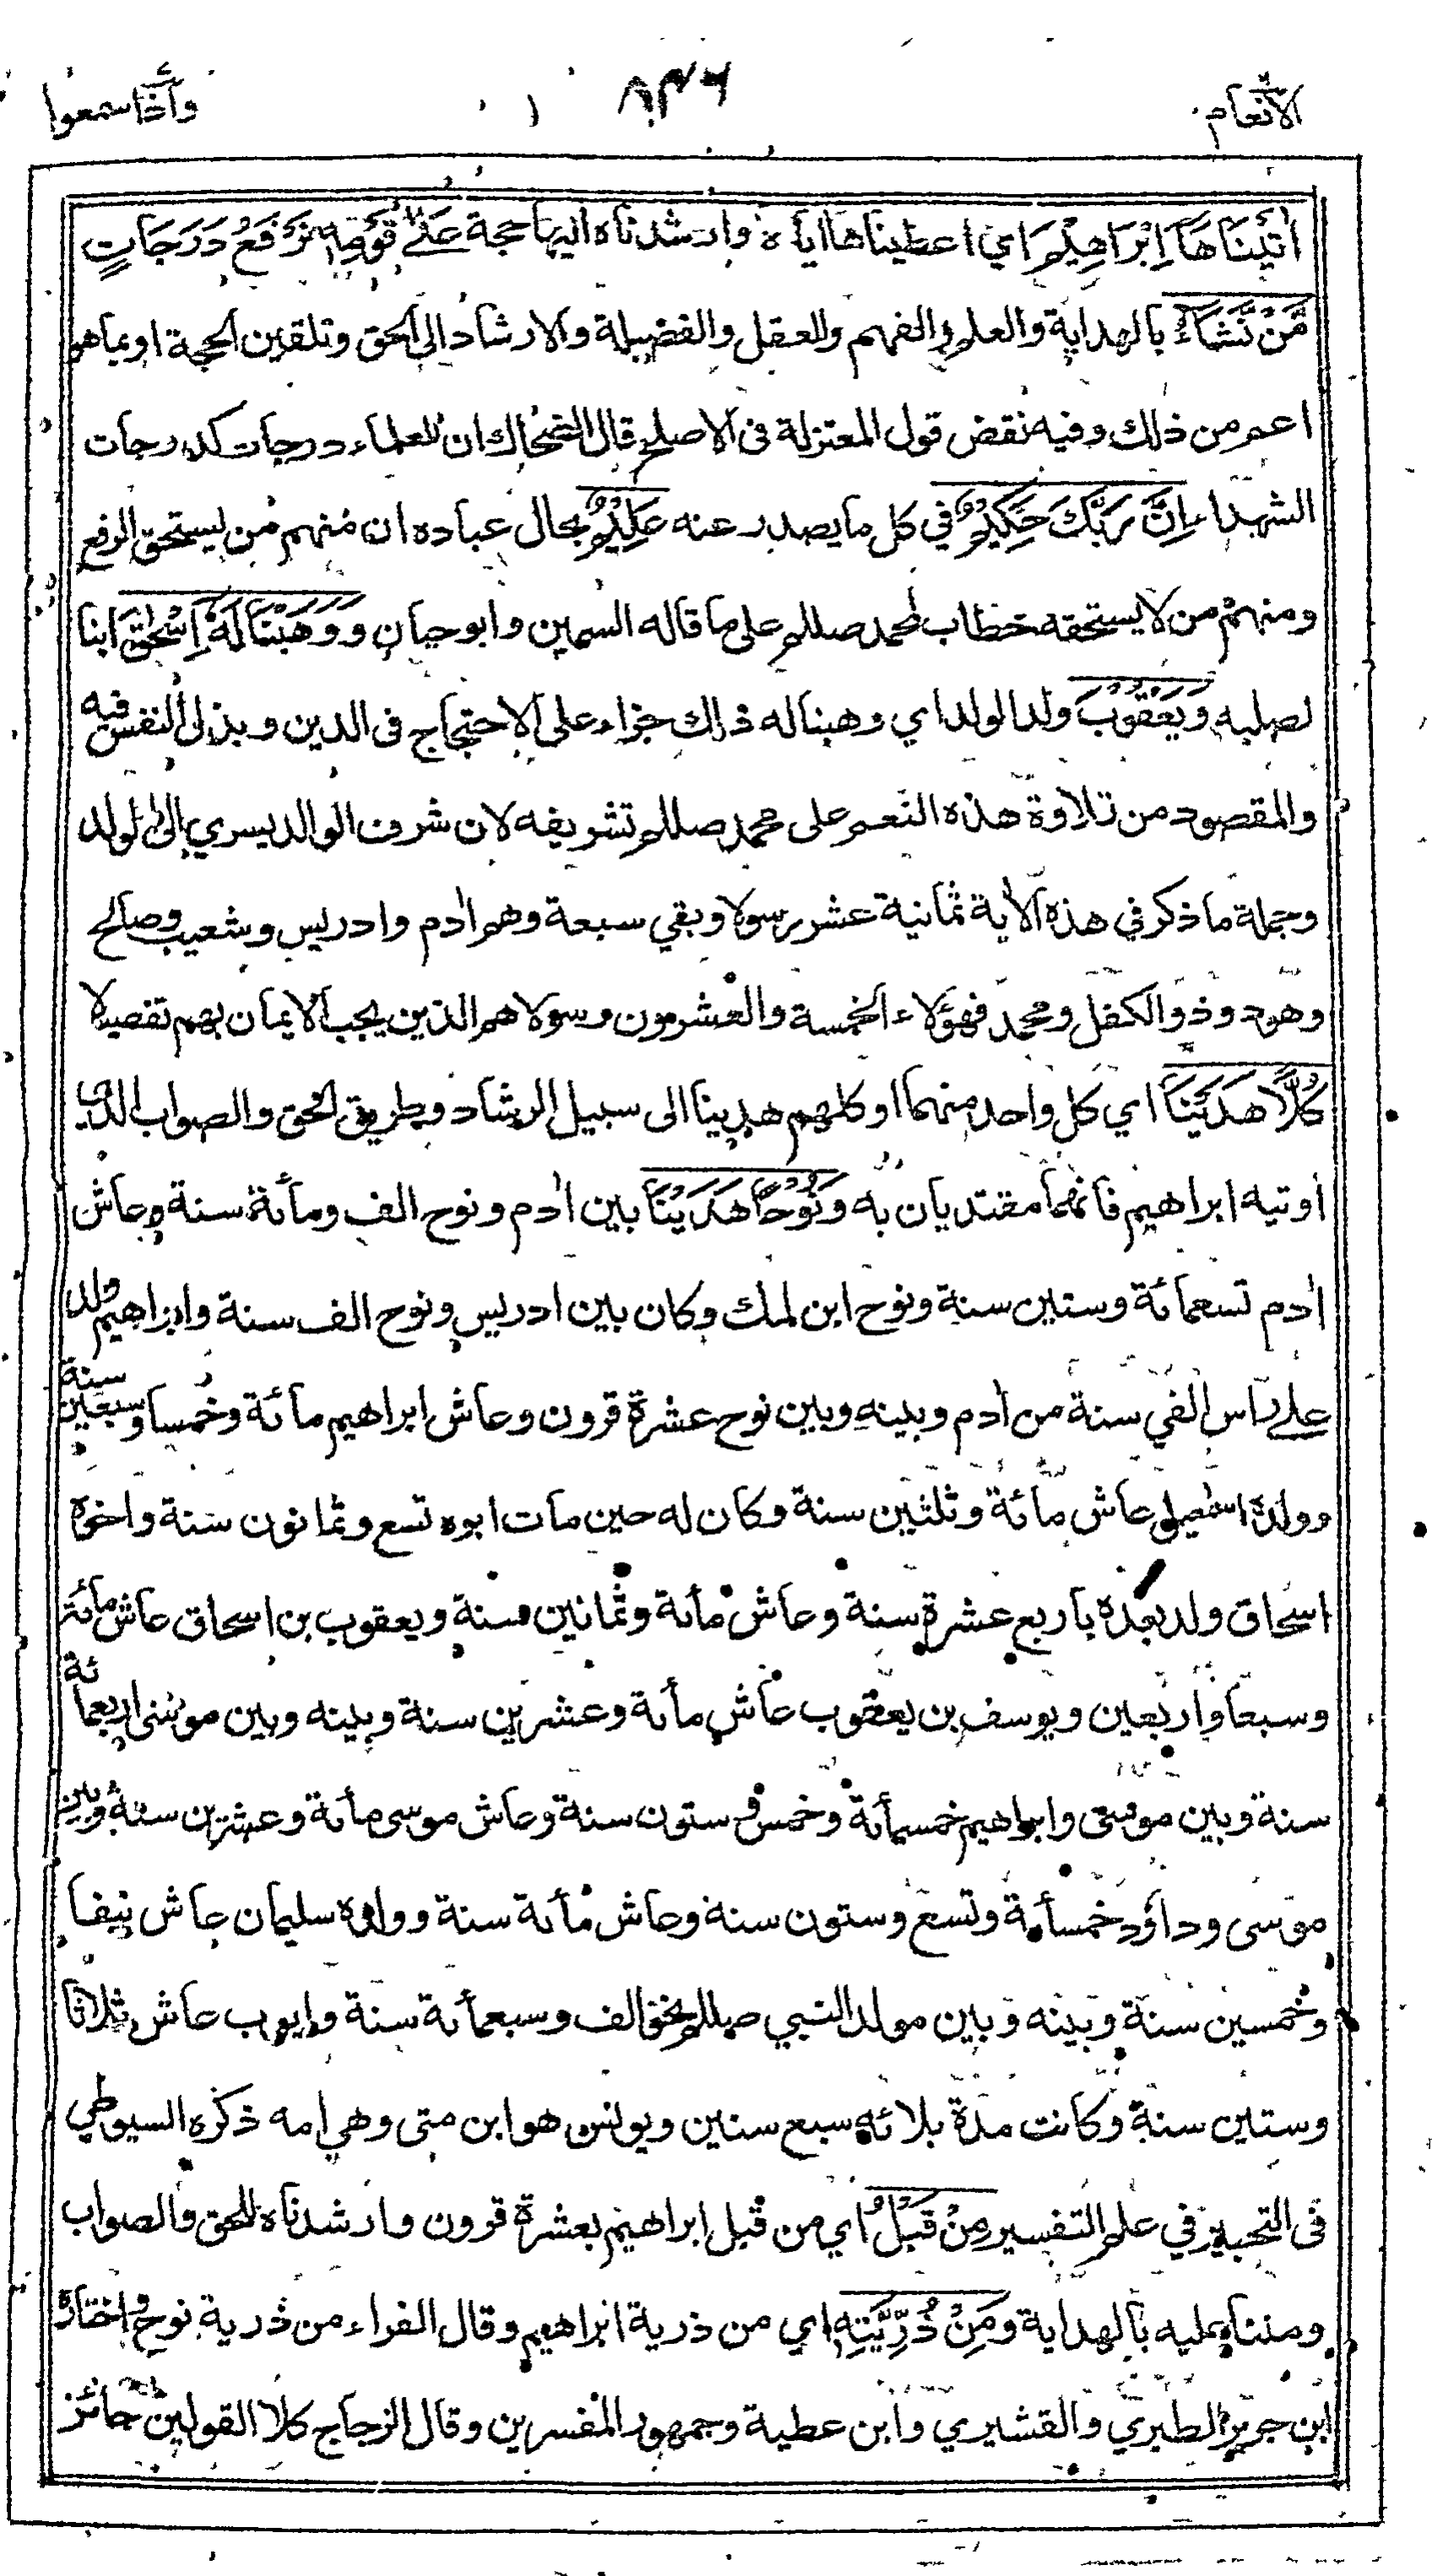 الانعام ٨٣٦ واذا سمعوا
اٰتَيْنَاهَا اِبْرَاهِيْمَ اي اعطيناها اياه وارشدناه اليها حجة عَلٰى قَوْمِهٖ نَرْفَعُ دَرَجَاتٍ
مَّنْ نَّشَآءُ بالهداية والعلم والفهم والعقل والفضيلة والارشاد الى الحق وتلقين الحجة او بما هو
اعم من ذلك وفيه نقض قول المعتزلة في الاصلح قال الضحاك ان للعلماء درجات كدرجات
الشهداء اِنَّ رَبَّكَ حَكِيْمٌ في كل ما يصدر عنه عَلِيْمٌ بحال عباده ان منهم من يستحق الرفع
ومنهم من لا يستحقه خطاب لمحمد صللم على ما قاله السمين وابو حيان وَوَهَبْنَا لَهٗ اِسْحٰقَ ابنا
لصلبه وَيَعْقُوْبَ ولد الولد اي وهبنا له ذلك جزاء على الاحتجاج في الدين وبذل النفس فيه
والمقصود من تلاوة هذه النعم على محمد صللم تشريفه لان شرف الوالد يسري الى الولد
وجملة ما ذكر في هذه الاية ثمانية عشر رسولا وبقي سبعة وهم اٰدم وادريس وشعيب وصالح
وهود وذو الكفل ومحمد فهؤلاء الخمسة والعشرون رسولا هم الذين يجب الايمان بهم تفصيلا
كُلًّا هَدَيْنَا اي كل واحد منهما او كلهم هدينا الى سبيل الرشاد وطريق الحق والصواب الذي
اوتيه ابراهيم فانهما مقتديان به وَنُوْحًا هَدَيْنَا بين اٰدم ونوح الف ومأئة سنة وعاش
اٰدم تسعمائة وستين سنة ونوح ابن لمك وكان بين ادريس ونوح الف سنة وابراهيم ولد
على راس الفي سنة من اٰدم وبينه وبين نوح عشرة قرون وعاش ابراهيم مائة وخمسا وسبعين سنة
وولده اسمعيل عاش مائة وثلثين سنة وكان له حين مات ابوه تسع وثمانون سنة واخوه
اسحاق ولد بعده باربع عشرة سنة وعاش مأئة وثمانين سنة ويعقوب بن اسحاق عاش مائة
وسبعا واربعين ويوسف بن يعقوب عاش مأئة وعشرين سنة وبينه وبين موسى اربعمائة
سنة وبين موسى وابراهيم خمسمأئة وخمس وستون سنة وعاش موسى مأئة وعشرين سنة وبين
موسى وداود خمسمأئة وتسع وستون سنة وعاش مأئة سنة وولده سليمان عاش نيفا
وخمسين سنة وبينه وبين مولد النبي صللم نحو الف وسبعمأئة سنة وايوب عاش ثلاثا
وستين سنة وكانت مدة بلائه سبع سنين ويونس هو ابن متى وهي امه ذكره السيوطي
في التحبير في علم التفسير مِنْ قَبْلُ اي من قبل ابراهيم بعشرة قرون وارشدناه للحق والصواب
ومننا عليه بالهداية وَمِنْ ذُرِّيَّتِهٖ اي من ذرية ابراهيم وقال الفراء من ذرية نوح واختاره
ابن جرير الطبري والقشيري وابن عطية وجمهور المفسرين وقال الزجاج كلا القولين جائز